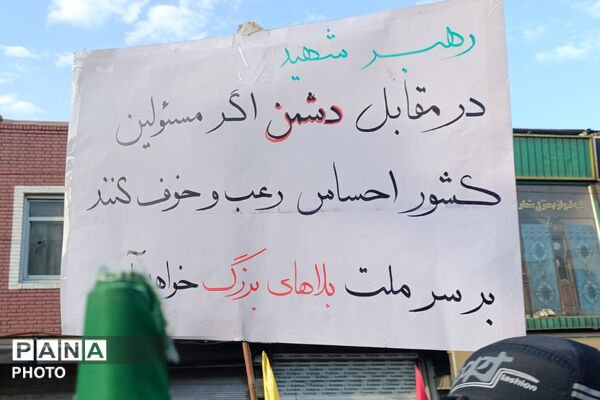 رهبر شهید
در مقابل دشمن اگر مسئولین
کشور احساس رعب و خوف کنند
بر سر ملت بلاهای بزرگ
PANA
PHOTO
fashion